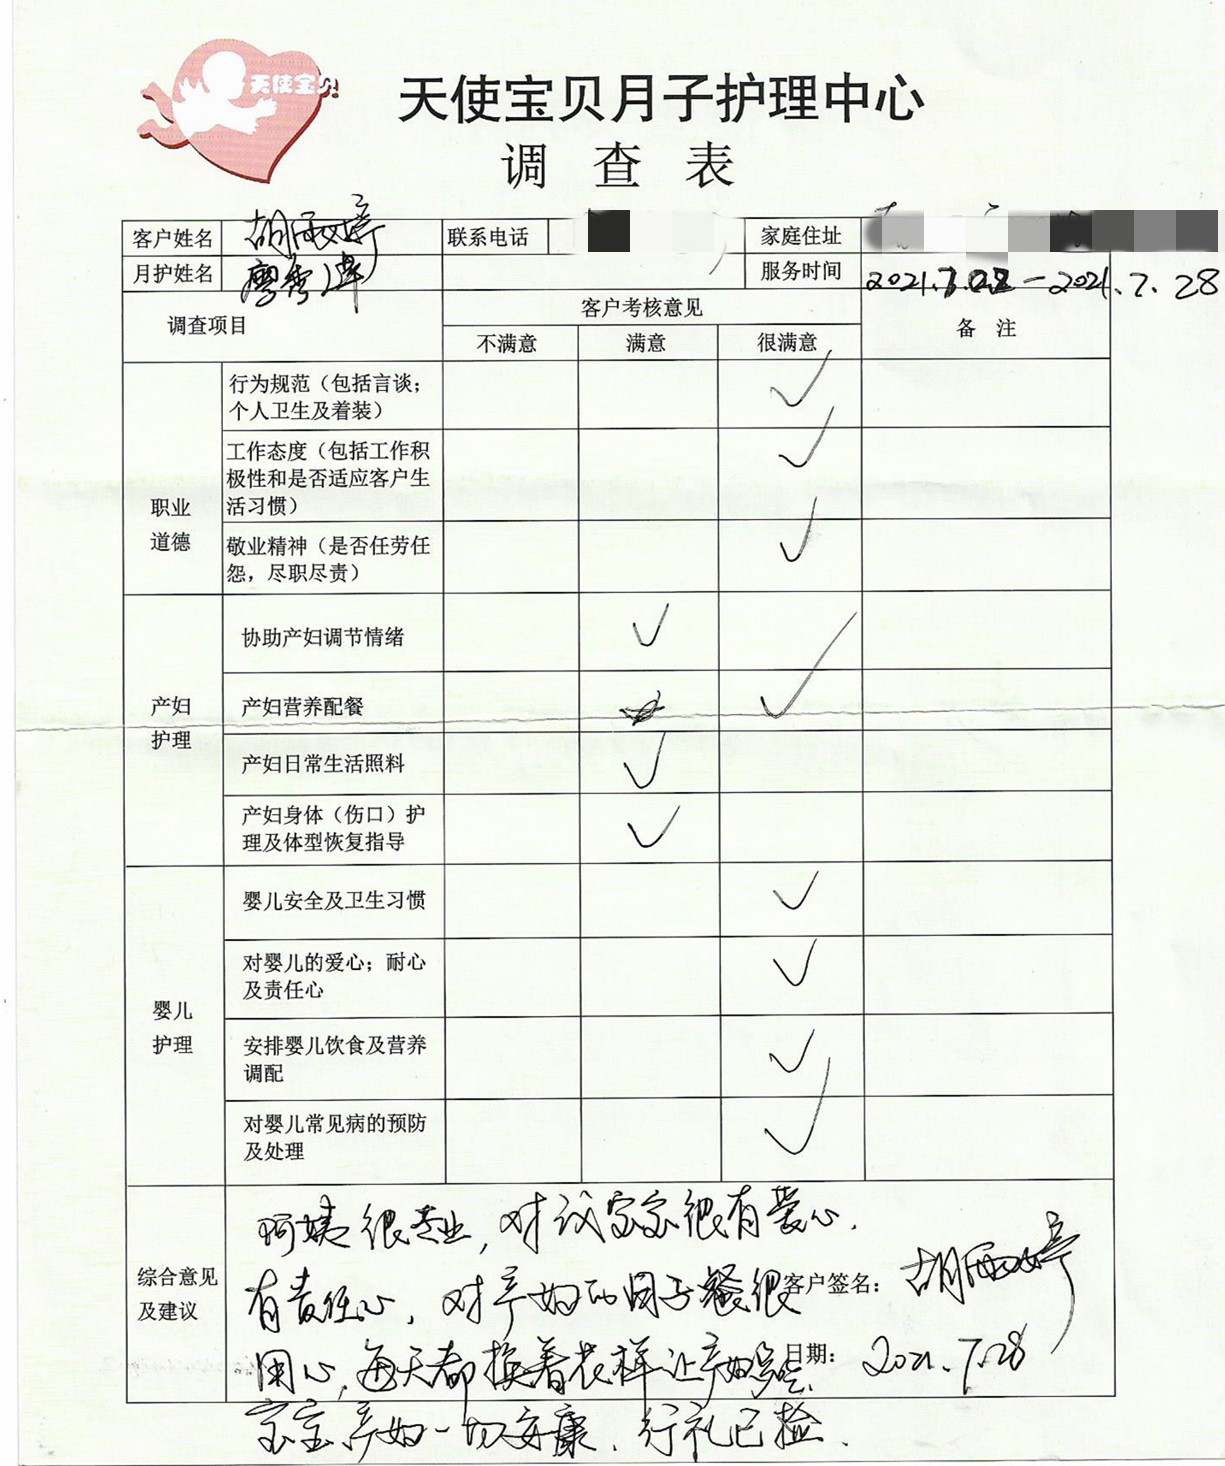 天使宝贝
天使宝贝月子护理中心
调查表
客户姓名 胡雨婷 联系电话 家庭住址
月护姓名 廖秀 服务时间 2021.7.02—2021.7.28
调查项目 客户考核意见 备注
不满意 满意 很满意
职业道德
行为规范（包括言谈；
个人卫生及着装）
工作态度（包括工作积
极性和是否适应客户生
活习惯）
敬业精神（是否任劳任
怨，尽职尽责）
产妇护理
协助产妇调节情绪
产妇营养配餐
产妇日常生活照料
产妇身体（伤口）护
理及体型恢复指导
婴儿护理
婴儿安全及卫生习惯
对婴儿的爱心；耐心
及责任心
安排婴儿饮食及营养
调配
对婴儿常见病的预防
及处理
综合意见
及建议
阿姨很专业，对宝宝很有爱心.
有责任心，对产妇的月子餐很
用心，每天都换着花样让产妇
宝宝产妇一切安康、行礼已检.
客户签名： 胡雨婷
日期： 2021.7.28